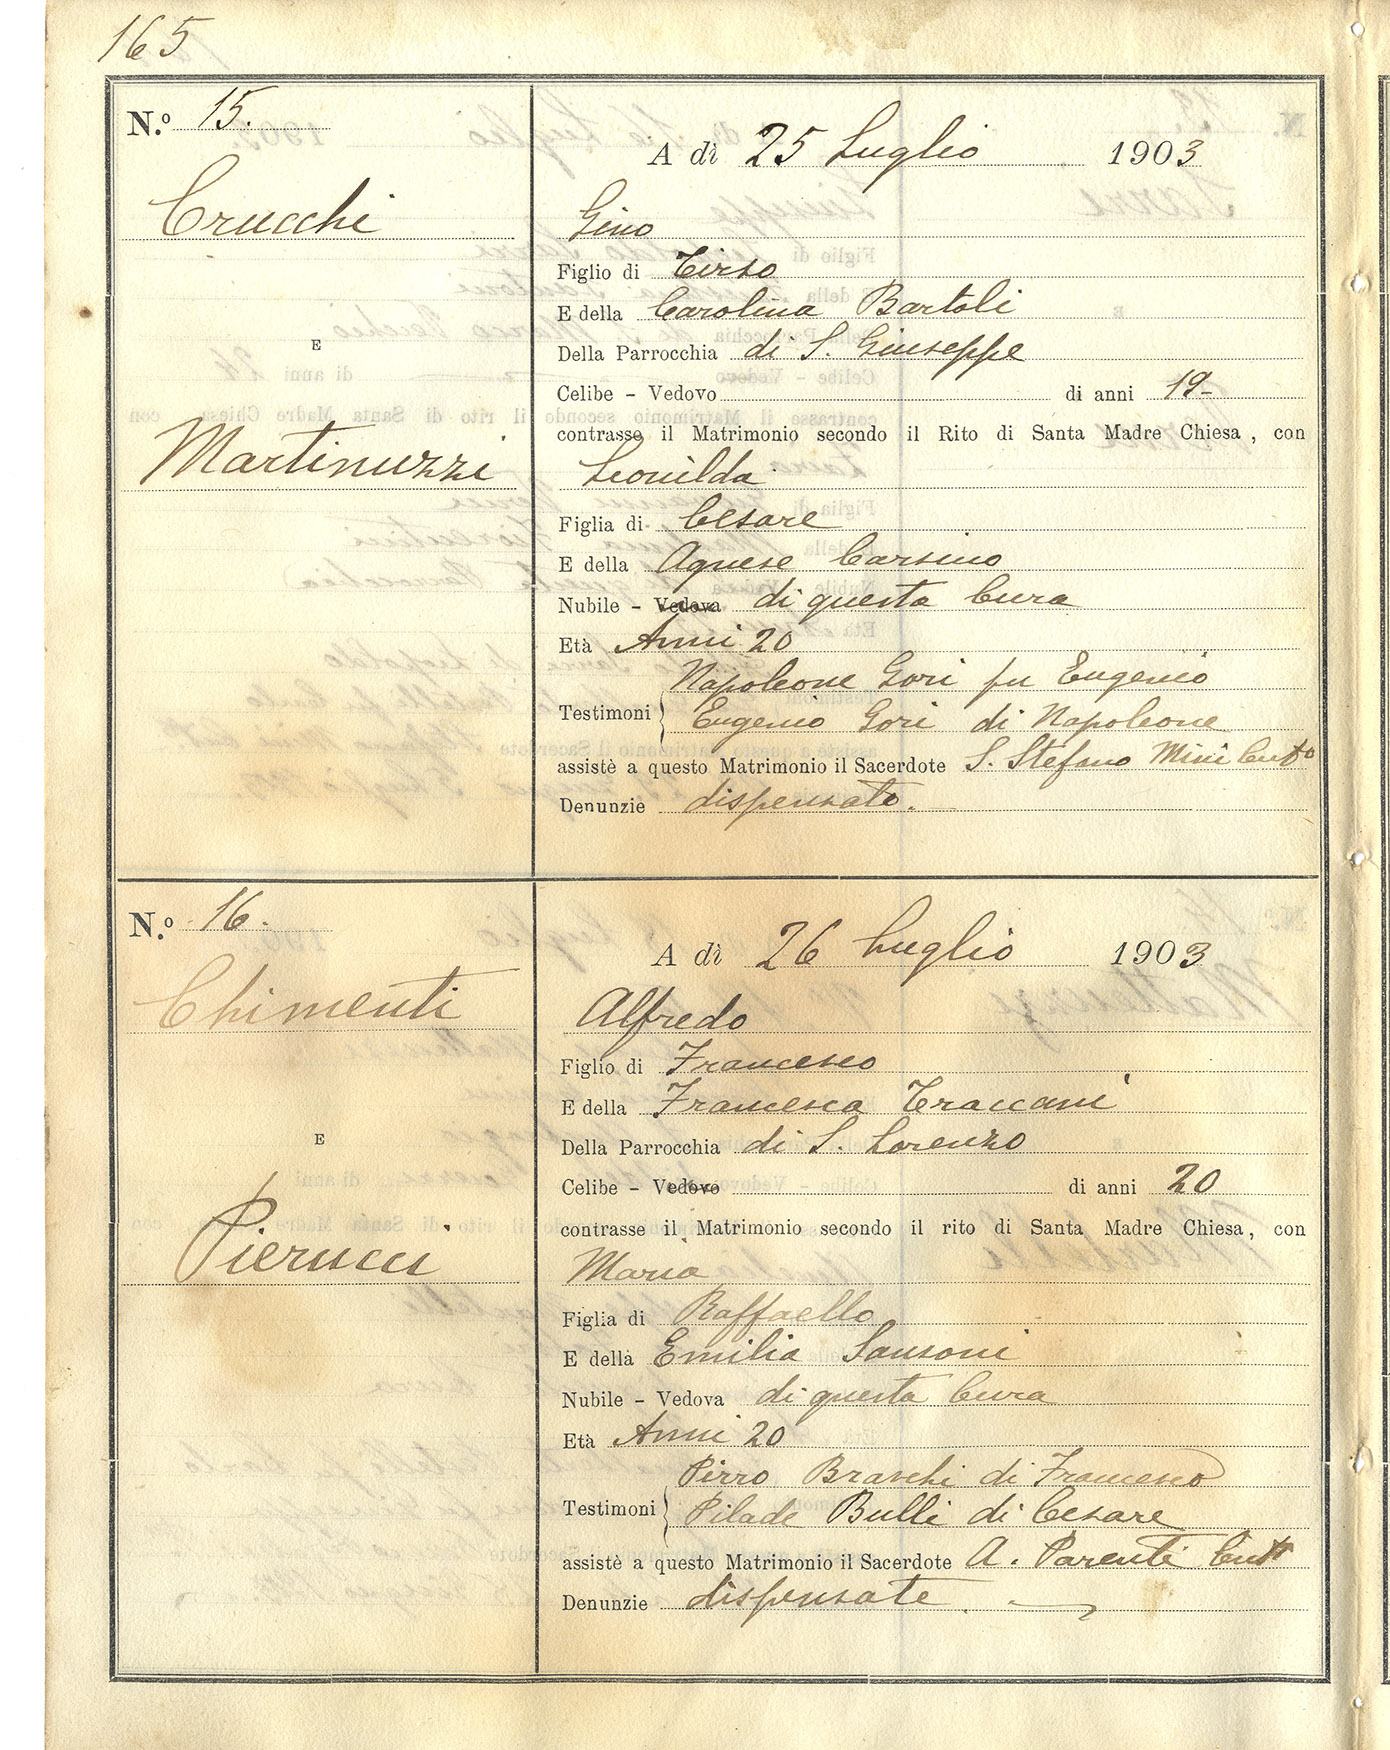 165
N.º 15.
A dì 25 Luglio 1903
Crucchi
Gino
Figlio di Tirso
E della Carolina Bartoli
E
Della Parrocchia di S. Giuseppe
Celibe - Vedovo di anni 19-
contrasse il Matrimonio secondo il Rito di Santa Madre Chiesa, con
Martinuzzi
Leonilda
Figlia di Cesare
E della Agnese Carsino
Nubile - Vedova di questa Cura
Età Anni 20
Napoleone Gori fu Eugenio
Testimoni
Eugenio Gori di Napoleone
assistè a questo Matrimonio il Sacerdote S. Stefano Mini Curto
Denunzie dispensate.
N.º 16.
A dì 26 Luglio 1903
Chimenti
Alfredo
Figlio di Francesco
E della Francesca Traccani
E
Della Parrocchia di S. Lorenzo
Celibe - Vedovo di anni 20
contrasse il Matrimonio secondo il rito di Santa Madre Chiesa, con
Pierucci
Maria
Figlia di Raffaello
E della Emilia Sansoni
Nubile - Vedova di questa Cura
Età Anni 20
Pirro Braschi di Francesco
Testimoni
Pilade Bulli di Cesare
assistè a questo Matrimonio il Sacerdote A. Parenti
Denunzie dispensate.